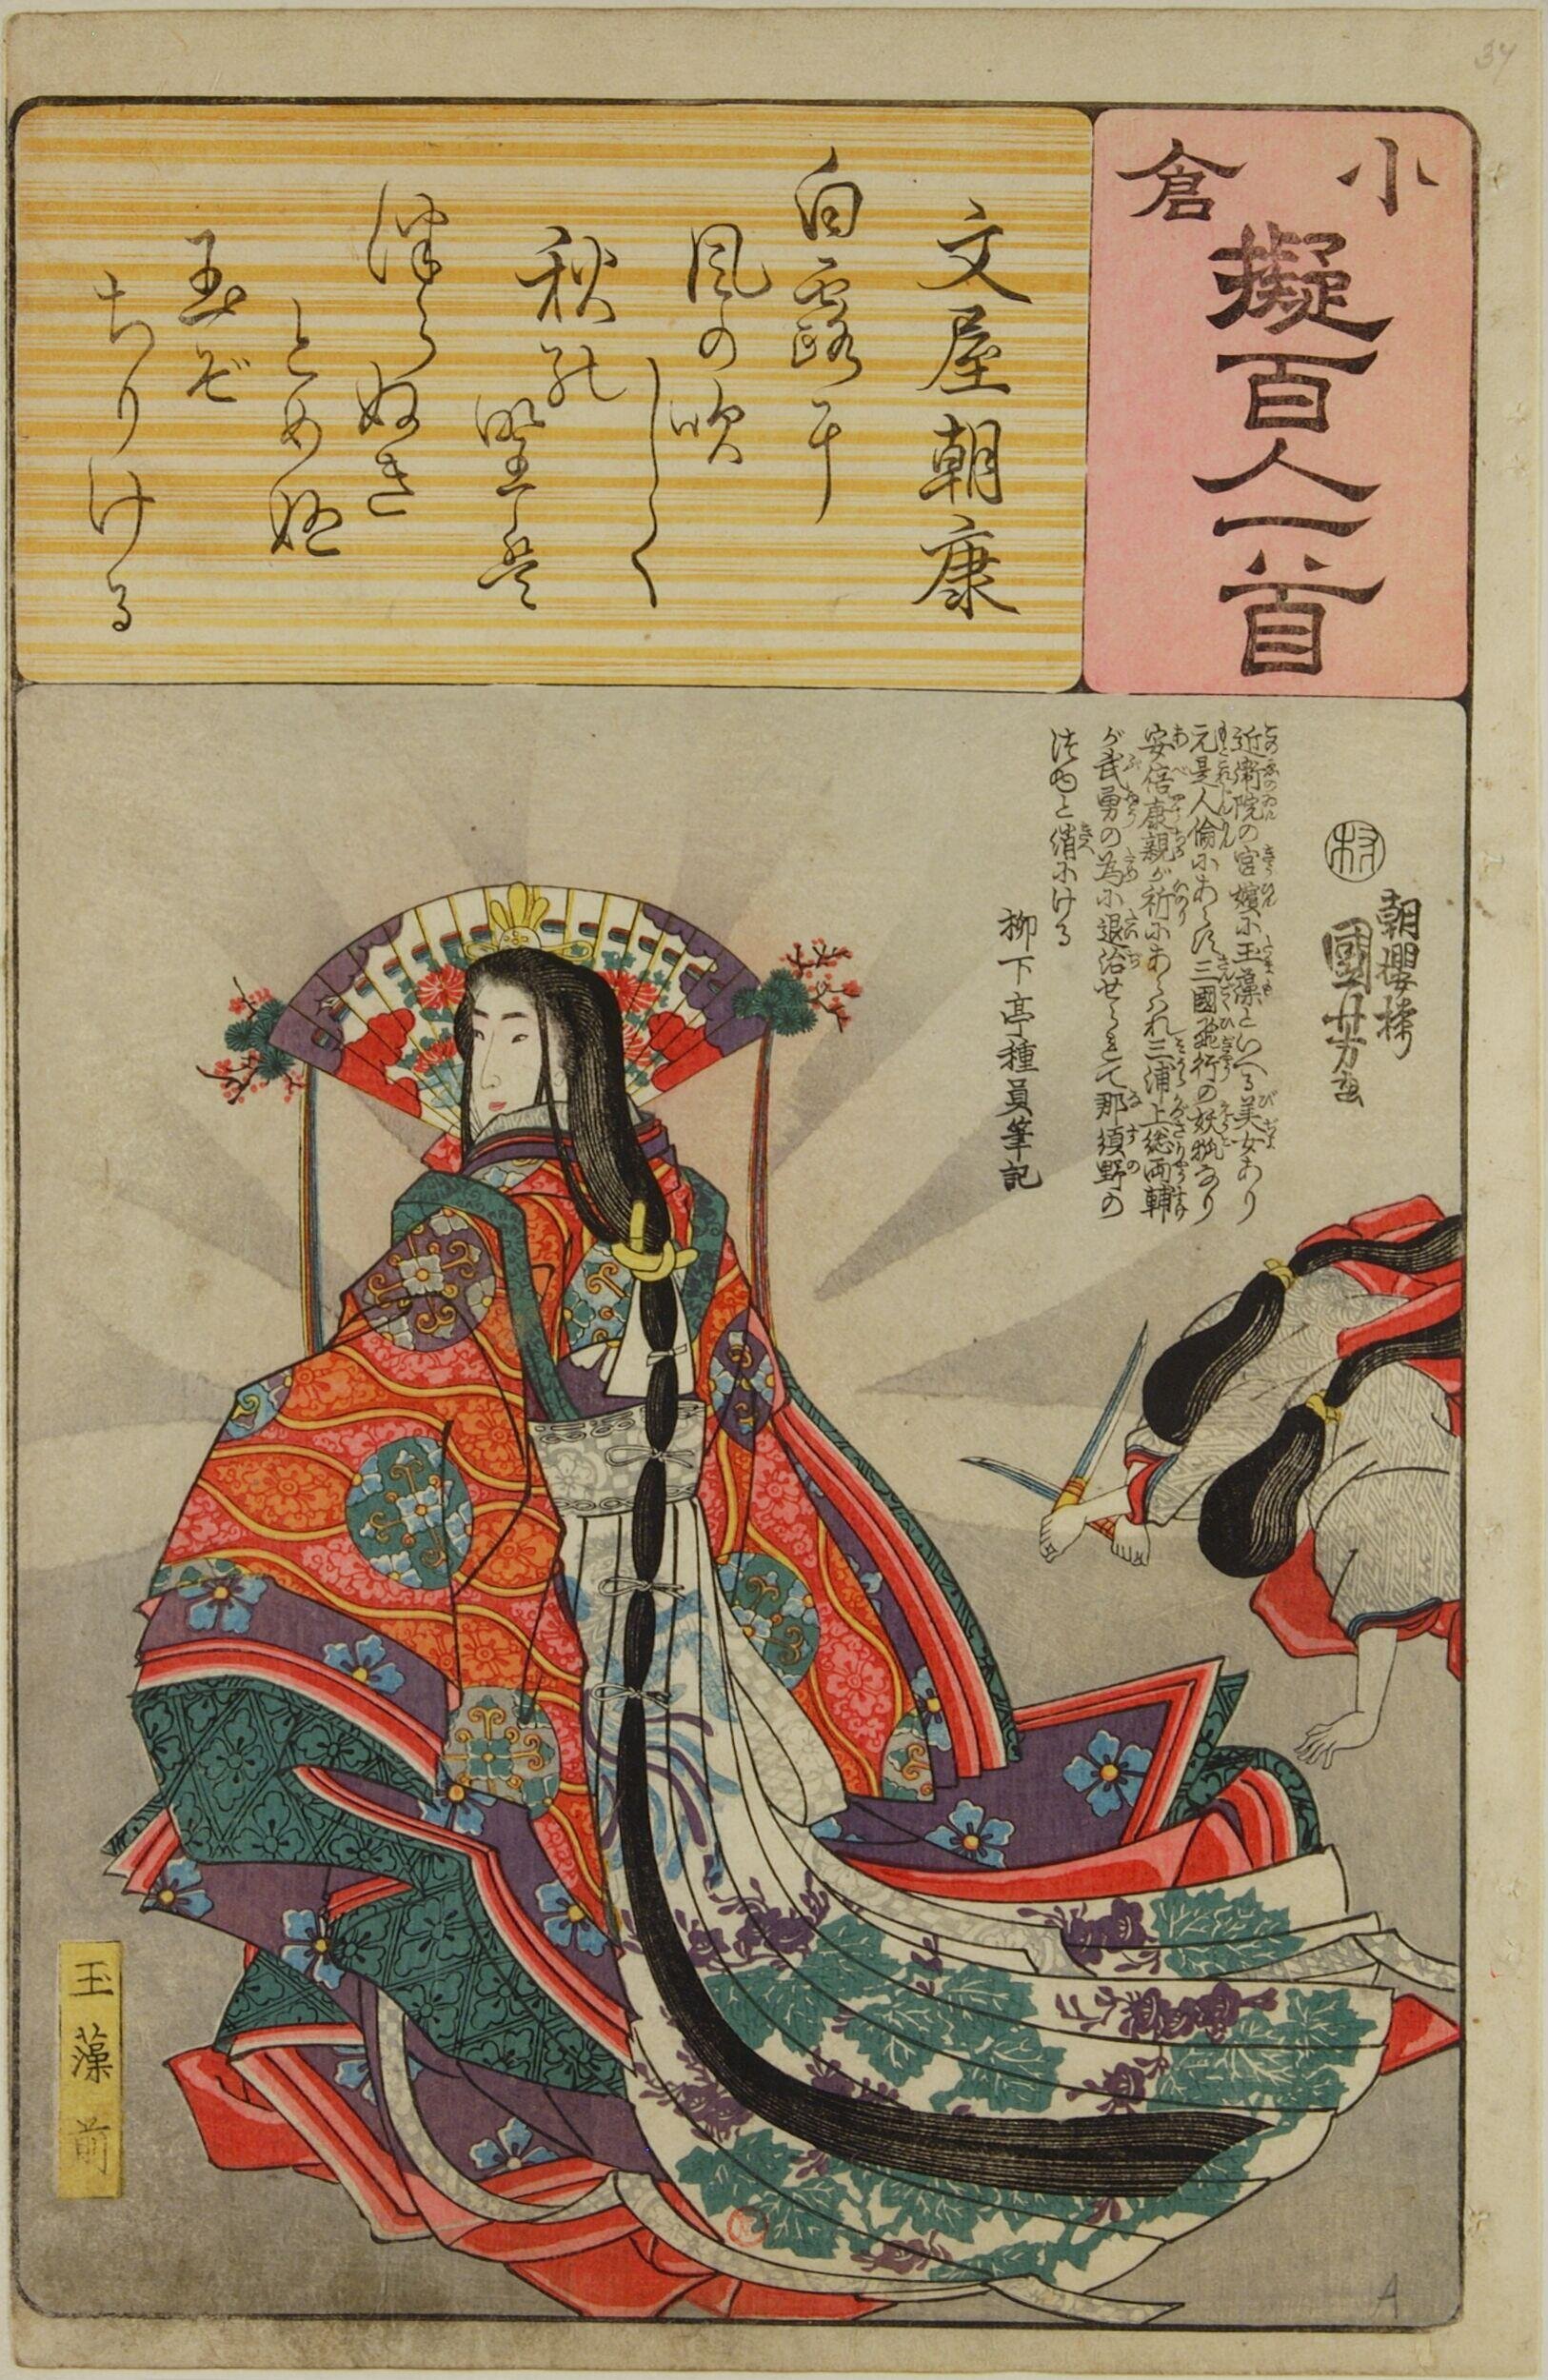 小倉
擬百人一首
文屋朝康
白露耳
風の吹
しく
秋乃
野者
つらぬき
とめぬ
玉ぞ
ちりける
朝櫻楼
國芳画
近衛院の宮嬪に玉藻といへる美女あり
元是人倫にあらず三國飛行の妖狐なり
安倍康親が祈にあらはれ三浦上総両輔
が武勇の為に退治せられて那須野の
法ゆと消にける
柳下亭種員筆記
玉藻前
34
A